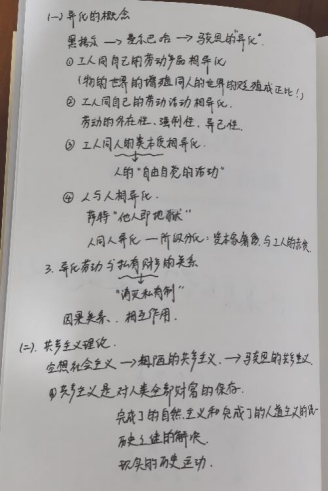 (一) 异化的概念
黑格尔 → 费尔巴哈 → 马克思的"异化".
① 工人同自己的劳动产品相异化
(物的世界的增殖同人的世界的贬值成正比!)
② 工人同自己的劳动活动相异化.
劳动的外在性、强制性、异己性.
③ 工人同人的类本质相异化.
人的"自由自觉的活动"
④ 人与人相异化.
萨特"他人即地狱"
人同人异化 — 阶级分化: 资本家 与工人的
3. 异化劳动与私有财产的关系
"消灭私有制"
因果关系、相互作用.
(二). 共产主义理论.
空想社会主义 → 粗陋的共产主义. → 马克思的共产主义
① 共产主义是对人类全部财富的保存.
完成了的自然主义和完成了的人道主义的统
历史之谜的解决.
现实的历史运动.